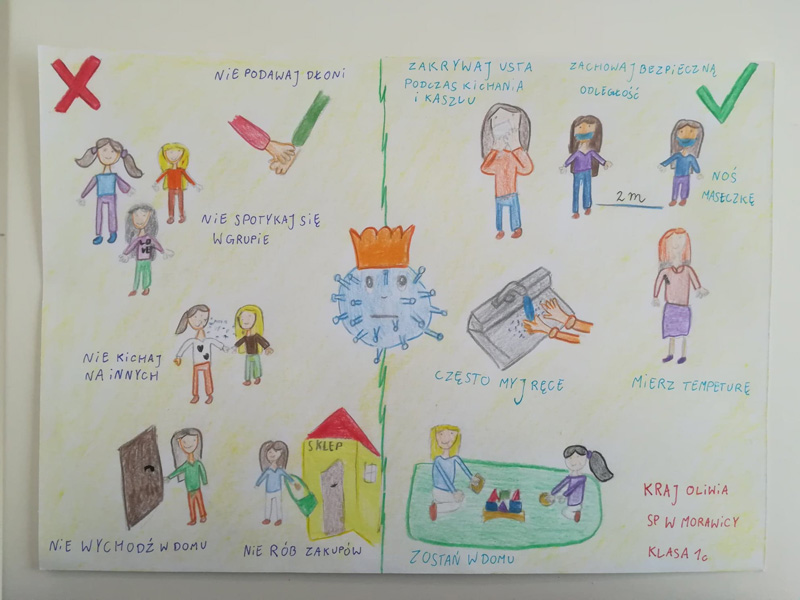 NIE PODAWAJ DŁONI
NIE SPOTYKAJ SIĘ
W GRUPIE
NIE KICHAJ
NA INNYCH
LOVE
SKLEP
NIE WYCHODŹ W DOMU
NIE RÓB ZAKUPÓW
ZAKRYWAJ USTA
PODCZAS KICHANIA
I KASZLU
ZACHOWAJ BEZPIECZNĄ
ODLEGŁOŚĆ
2 m
NOŚ
MASECZKĘ
CZĘSTO MYJ RĘCE
MIERZ TEMPETURĘ
ZOSTAŃ W DOMU
KRAJ OLIWIA
SP W MORAWICY
KLASA 1c